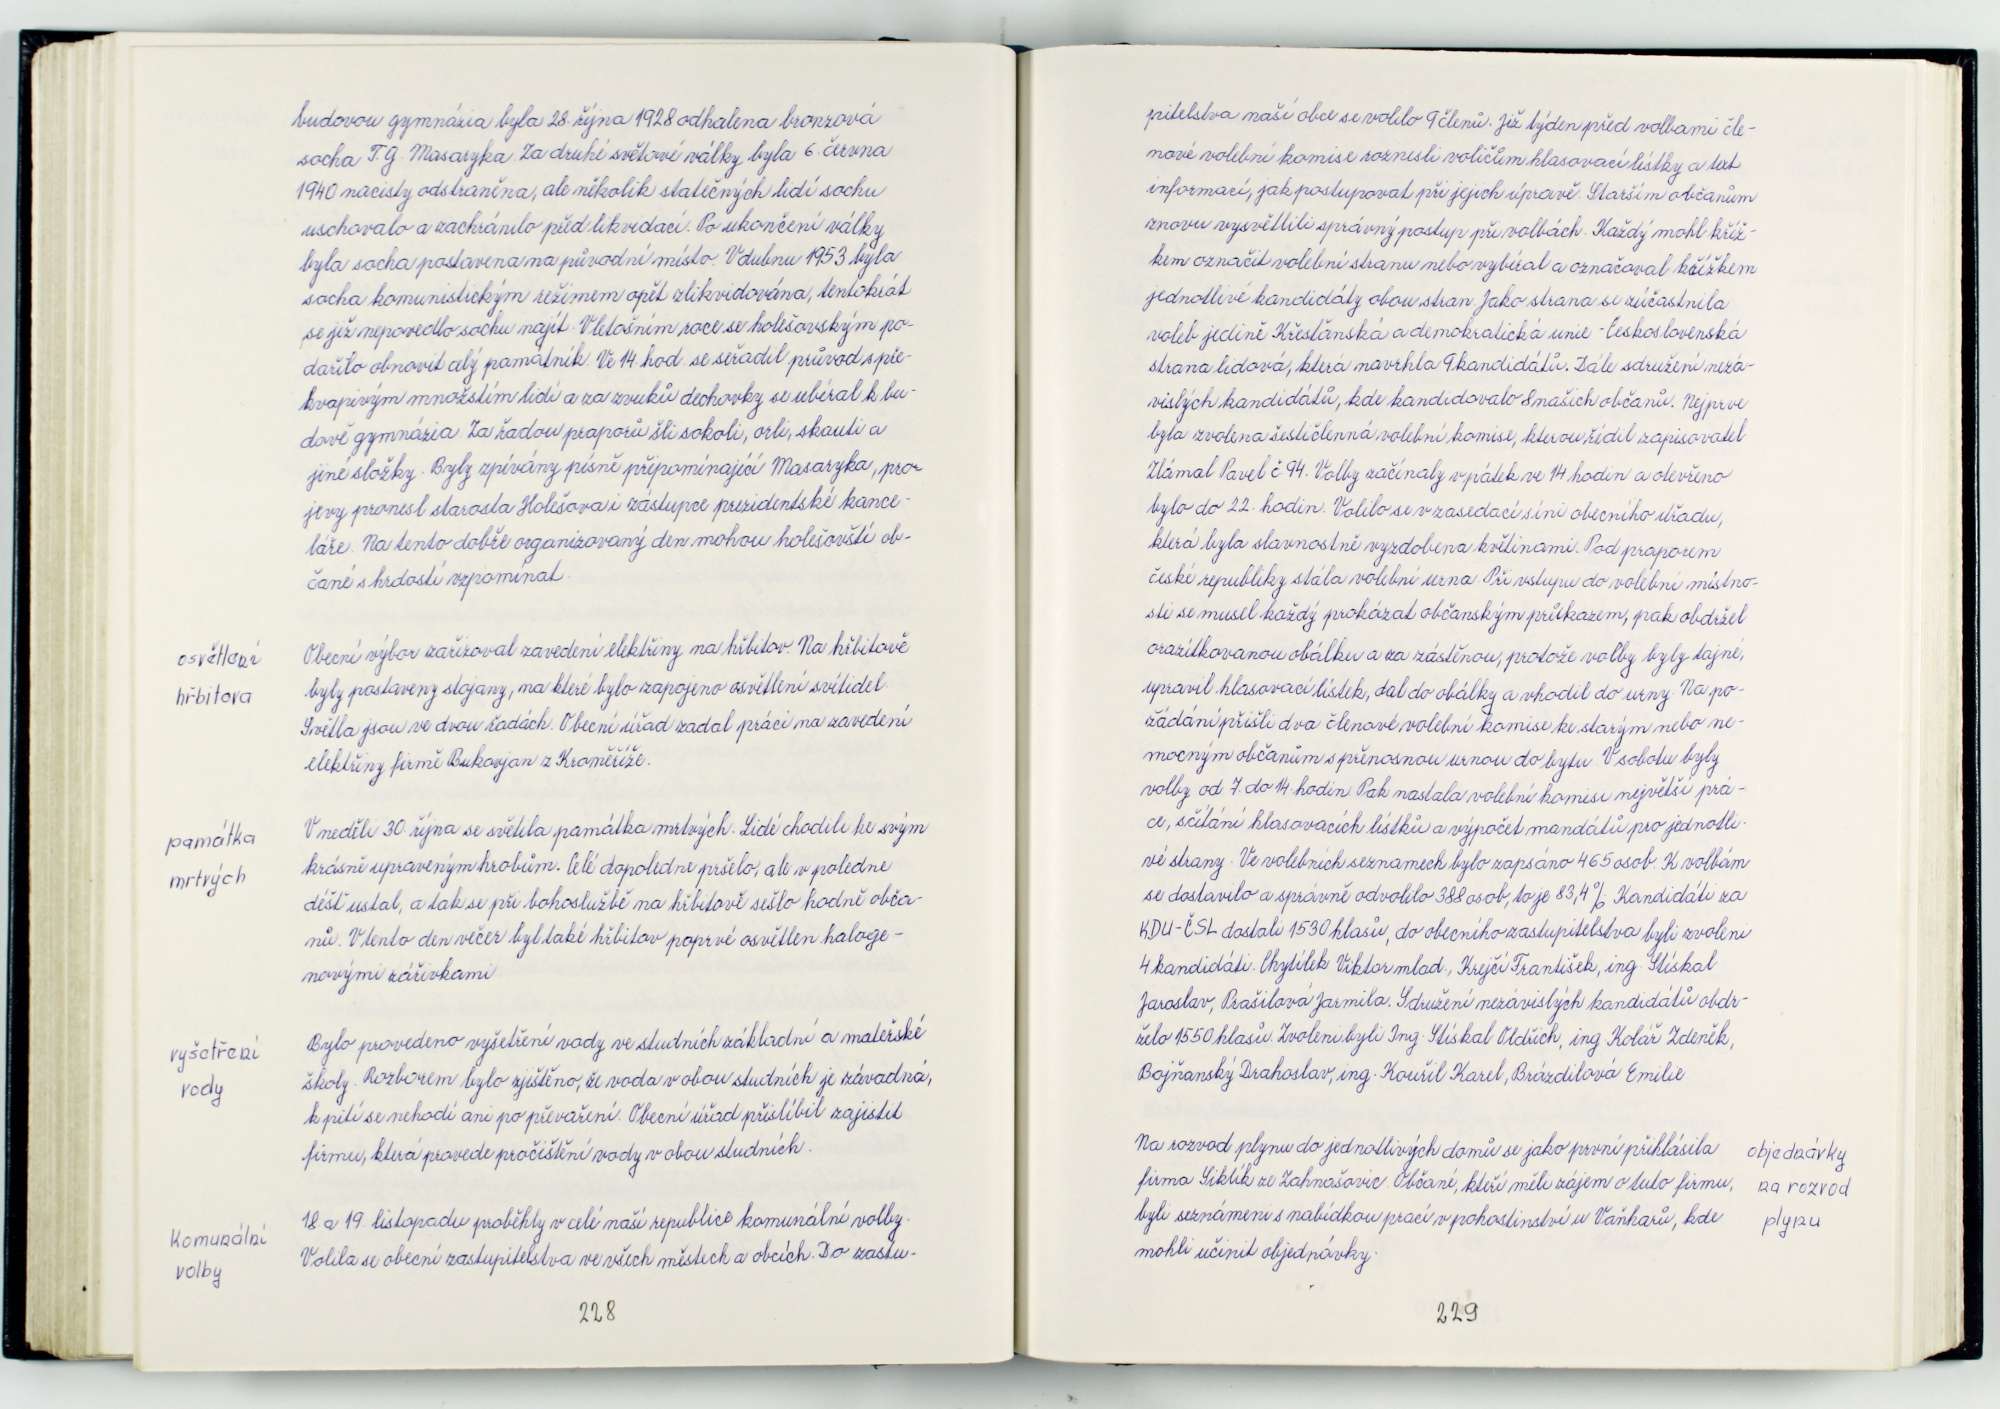 budovou gymnázia byla 28. října 1928 odhalena bronzová
socha T. G. Masaryka. Za druhé světové války byla 6. června
1940 nacisty odstraněna, ale několik statečných lidí sochu
uschovalo a zachránilo před likvidací. Po ukončení války
byla socha postavena na původní místo. V dubnu 1953 byla
socha komunistickým režimem opět zlikvidována, tentokrát
se již nepovedlo sochu najít. V letošním roce se holešovským po-
dařilo obnovit celý památník. Ve 14. hod. se seřadil průvod s pře-
kvapivým množstím lidí a za zvuků dechovky se ubíral k bu-
dově gymnázia. Za řadou praporů šli sokoli, orli, skauti a
jiné složky. Byly zpívány písně připomínající Masaryka, pro-
jevy pronesl starosta Holešova i zástupce prezidentské kance-
láře. Na tento dobře organizovaný den mohou holešovští ob-
čané s hrdostí vzpomínat.
osvětlení
hřbitova
Obecní výbor zařizoval zavedení elektřiny na hřbitov. Na hřbitově
byly postaveny stojany, na které bylo zapojeno osvětlení svítidel.
Světla jsou ve dvou řadách. Obecní úřad zadal práci na zavedení
elektřiny firmě Bukovjan z Kroměříže.
památka
mrtvých
V neděli 30. října se světila památka mrtvých. Lidé chodili ke svým
krásně upraveným hrobům. Celé dopoledne pršelo, ale v poledne
déšť ustal, a tak se při bohoslužbě na hřbitově sešlo hodně obča-
nů. V tento den večer byl také hřbitov poprvé osvětlen haloge-
novými zářivkami.
vyšetření
vody
Bylo provedeno vyšetření vody ve studních základní a mateřské
školy. Rozborem bylo zjištěno, že voda v obou studních je závadná,
k pití se nehodí ani po převaření. Obecní úřad přislíbil zajistit
firmu, která provede pročištění vody v obou studních.
Komunální
volby
18. a 19. listopadu proběhly v celé naší republice komunální volby.
Volila se obecní zastupitelstva ve všech městech a obcích. Do zastu-
228
pitelstva naší obce se volilo 9 členů. Již týden před volbami čle-
nové volební komise roznesli voličům hlasovací lístky a text
informací, jak postupovat při jejich úpravě. Starším občanům
znovu vysvětlili správný postup při volbách. Každý mohl kříž-
kem označit volební stranu nebo vybíral a označoval křížkem
jednotlivé kandidáty obou stran. Jako strana se zúčastnila
voleb jedině Křesťanská a demokratická unie - Československá
strana lidová, která navrhla 9 kandidátů. Dále sdružení nezá-
vislých kandidátů, kde kandidovalo 8 našich občanů. Nejprve
byla zvolena šestičlenná volební komise, kterou řídil zapisovatel
Zlámal Pavel č. 94. Volby začínaly v pátek ve 14 hodin a otevřeno
bylo do 22. hodin. Volilo se v zasedací síni obecního úřadu,
která byla slavnostně vyzdobena květinami. Pod praporem
české republiky stála volební urna. Při vstupu do volební místno-
sti se musel každý prokázat občanským průkazem, pak obdržel
orazítkovanou obálku a za zástěnou, protože volby byly tajné,
upravil hlasovací lístek, dal do obálky a vhodil do urny. Na po-
žádání přišli dva členové volební komise ke starým nebo ne-
mocným občanům s přenosnou urnou do bytu. V sobotu byly
volby od 7. do 14. hodin. Pak nastala volební komisi největší prá-
ce, sčítání hlasovacích lístků a výpočet mandátů pro jednotli-
vé strany. Ve volebních seznamech bylo zapsáno 465 osob. K volbám
se dostavilo a správně odvolilo 388 osob, to je 83,4 %. Kandidáti za
KDU-ČSL dostali 1530 hlasů, do obecního zastupitelstva byli zvoleni
4 kandidáti. Chytílek Viktor mlad., Krejčí František, ing. Stískal
Jaroslav, Prašilová Jarmila. Sdružení nezávislých kandidátů obdr-
želo 1550 hlasů. Zvoleni byli Ing. Stískal Oldřich, ing. Kolář Zdeněk,
Bojňanský Drahoslav, ing. Kouřil Karel, Brázdilová Emilie
Na rozvod plynu do jednotlivých domů se jako první přihlásila
firma Siklík ze Zahnašovic. Občané, kteří měli zájem o tuto firmu,
byli seznámeni s nabídkou prací v pohostinství u Vaňharů, kde
mohli učinit objednávky.
objednávky
na rozvod
plynu
229